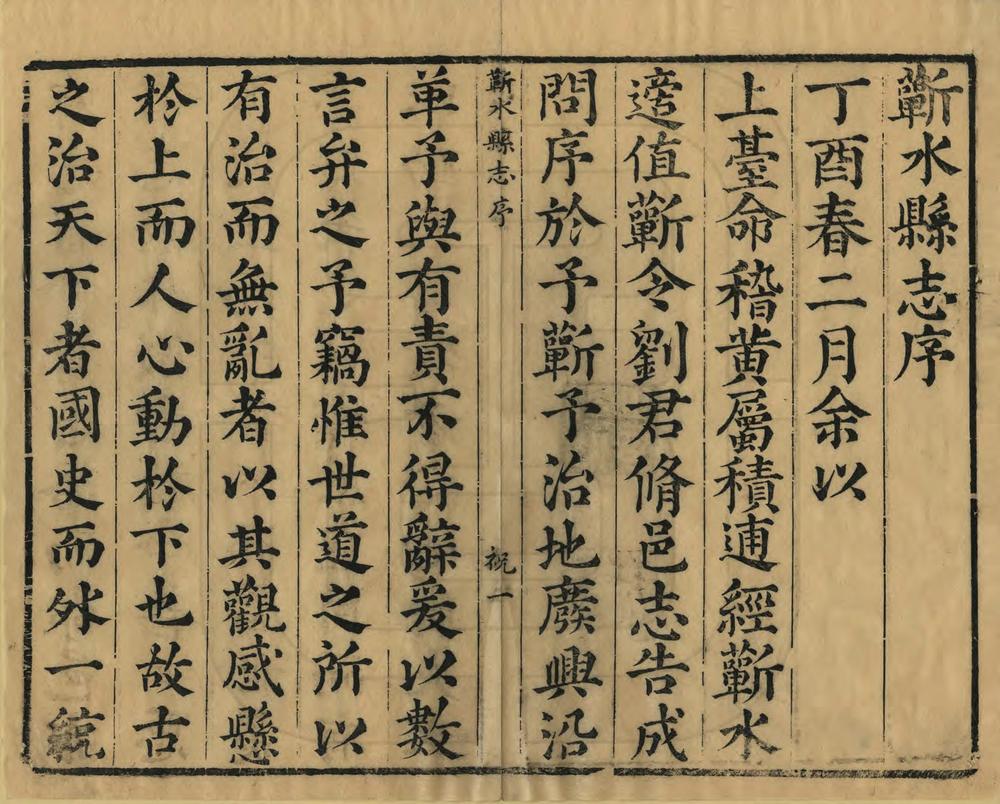 蘄水縣志序
丁酉春二月余以
上臺命稽黃屬積逋經蘄水
適值蘄令劉君脩邑志告成
問序於予蘄予治地廢興沿
蘄水縣志序 祝一
革予與有責不得辭爰以數
言弁之予竊惟世道之所以
有治而無亂者以其觀感懸
扵上而人心動扵下也故古
之治天下者國史而外一統